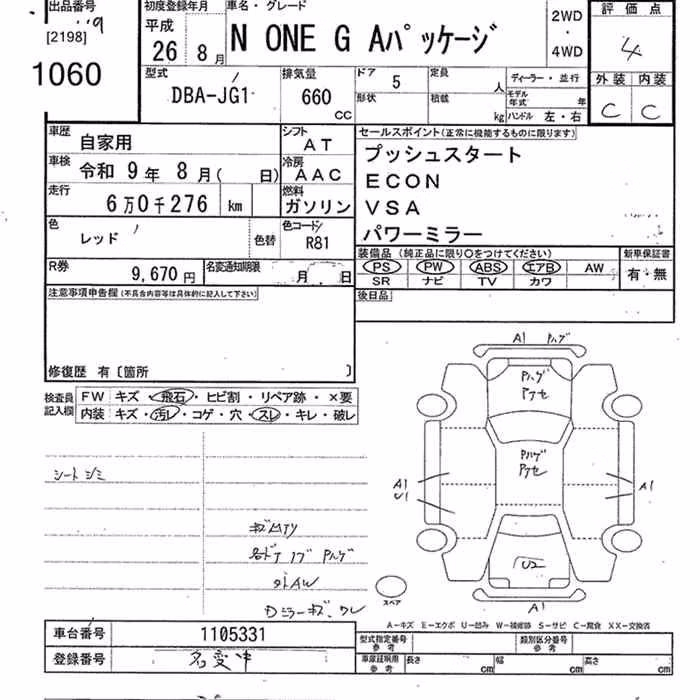 出品番号
[2198]
1060
初度登録年月
平成
26 8月
車名・グレード
N ONE G Aパッケージ
2WD
・
4WD
評価点
4
外装 内装
C C
型式
DBA-JG1
排気量
660
CC
ドア 5
形状
定員 人
積載 kg
ディーラー・並行
モデル年式 年
ハンドル 左・右
車歴
自家用
シフト
AT
車検
令和 9年 8月( 日)
冷房
AAC
走行
6万0千276 km
燃料
ガソリン
色
レッド
色替
色コード/
R81
R券
9,670円
名変通知期限
月 日
セールスポイント(正常に機能するものに限ります)
プッシュスタート
ECON
VSA
パワーミラー
装備品(純正品に限り〇をつけてください)
新車保証書
PS PW ABS エアB AW
SR ナビ TV カワ
有・無
後日品
注意事項申告欄(不具合内容等は具体的に記入して下さい)
修復歴 有〔箇所 〕
検査員
記入欄
FW キズ・飛石・ヒビ割・リペア跡・×要
内装 キズ・汚レ・コゲ・穴・スレ・キレ・破レ
シートシミ
キズ
外AW
Dミラーキズ、ワレ
A1 Pハゲ
Pハゲ
Pハゲ
A1
U1
A1
U2
A1
スペア
A−キズ E−エクボ U−凹み W−補修跡 S−サビ C−腐食 XX−交換済
車台番号
1105331
登録番号
名変中
型式指定番号
参考
類別区分番号
参考
車庫証明用
参考
長さ cm
幅 cm
高さ cm